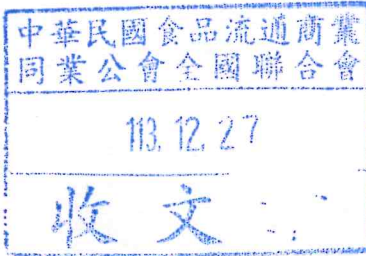 中華民國食品流通商業
同業公會全國聯合會
113.12.27
收文